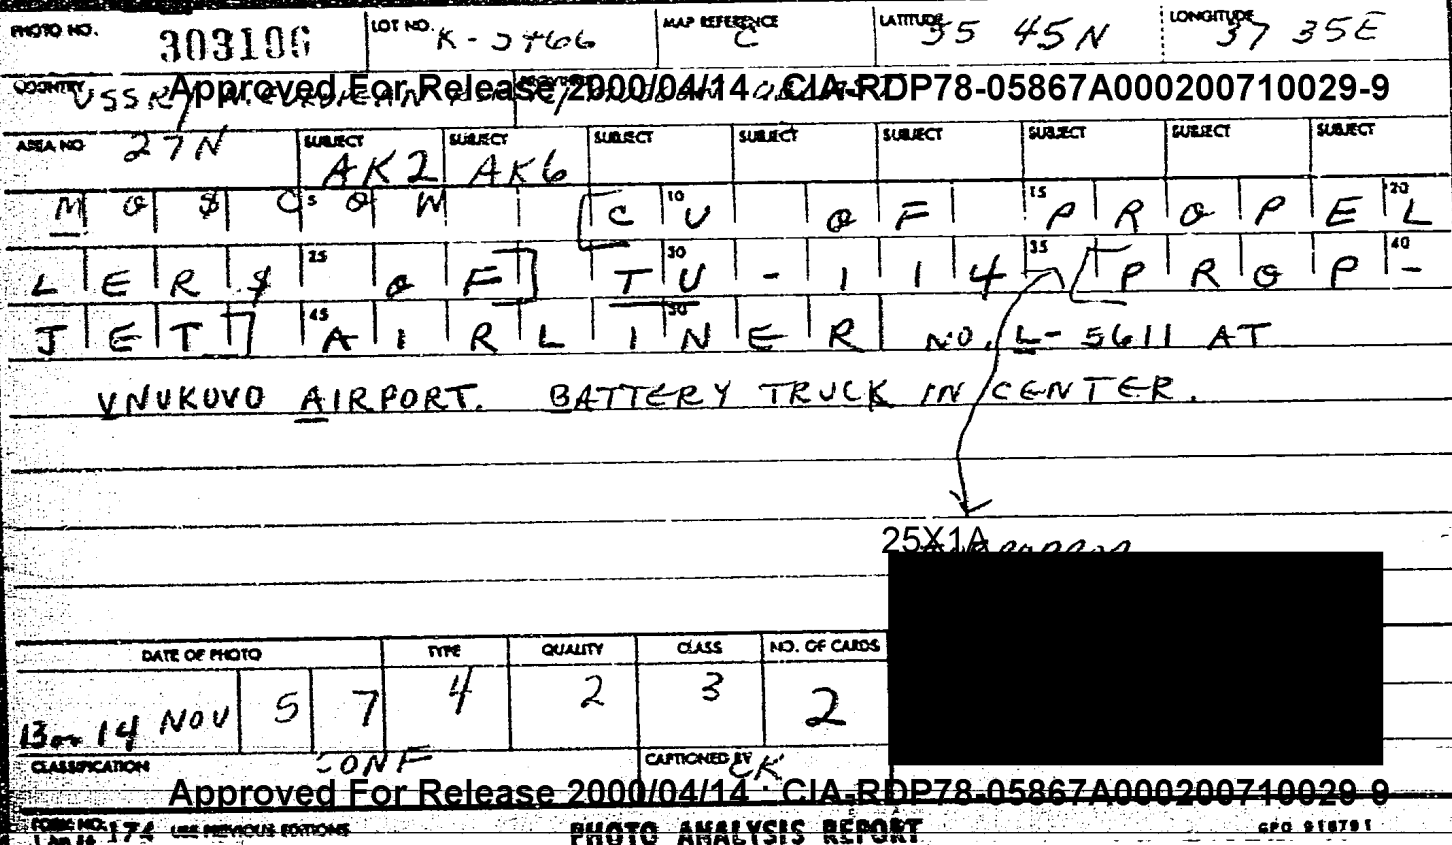 PHOTO NO. 303106 LOT NO. K-3466 MAP REFERENCE C LATITUDE 55 45N LONGITUDE 37 35E
COUNTRY USSR/
Approved For Release 2000/04/14 : CIA-RDP78-05867A000200710029-9
AREA NO. 27N SUBJECT AK2 SUBJECT AK6 SUBJECT SUBJECT SUBJECT SUBJECT SUBJECT SUBJECT
MOSCOW [CU OF PROPEL
LERS OF] TU-114 [PROP-
JET] AIRLINER NO. L-5611 AT
VNUKOVO AIRPORT. BATTERY TRUCK IN CENTER.
25X1A
DATE OF PHOTO TYPE QUALITY CLASS NO. OF CARDS
13 or 14 NOV 57 4 2 3 2
CLASSIFICATION CONF CAPTIONED BY CK
Approved For Release 2000/04/14 : CIA-RDP78-05867A000200710029-9
FORM NO. 174 USE PREVIOUS EDITIONS PHOTO ANALYSIS REPORT GPO 918791